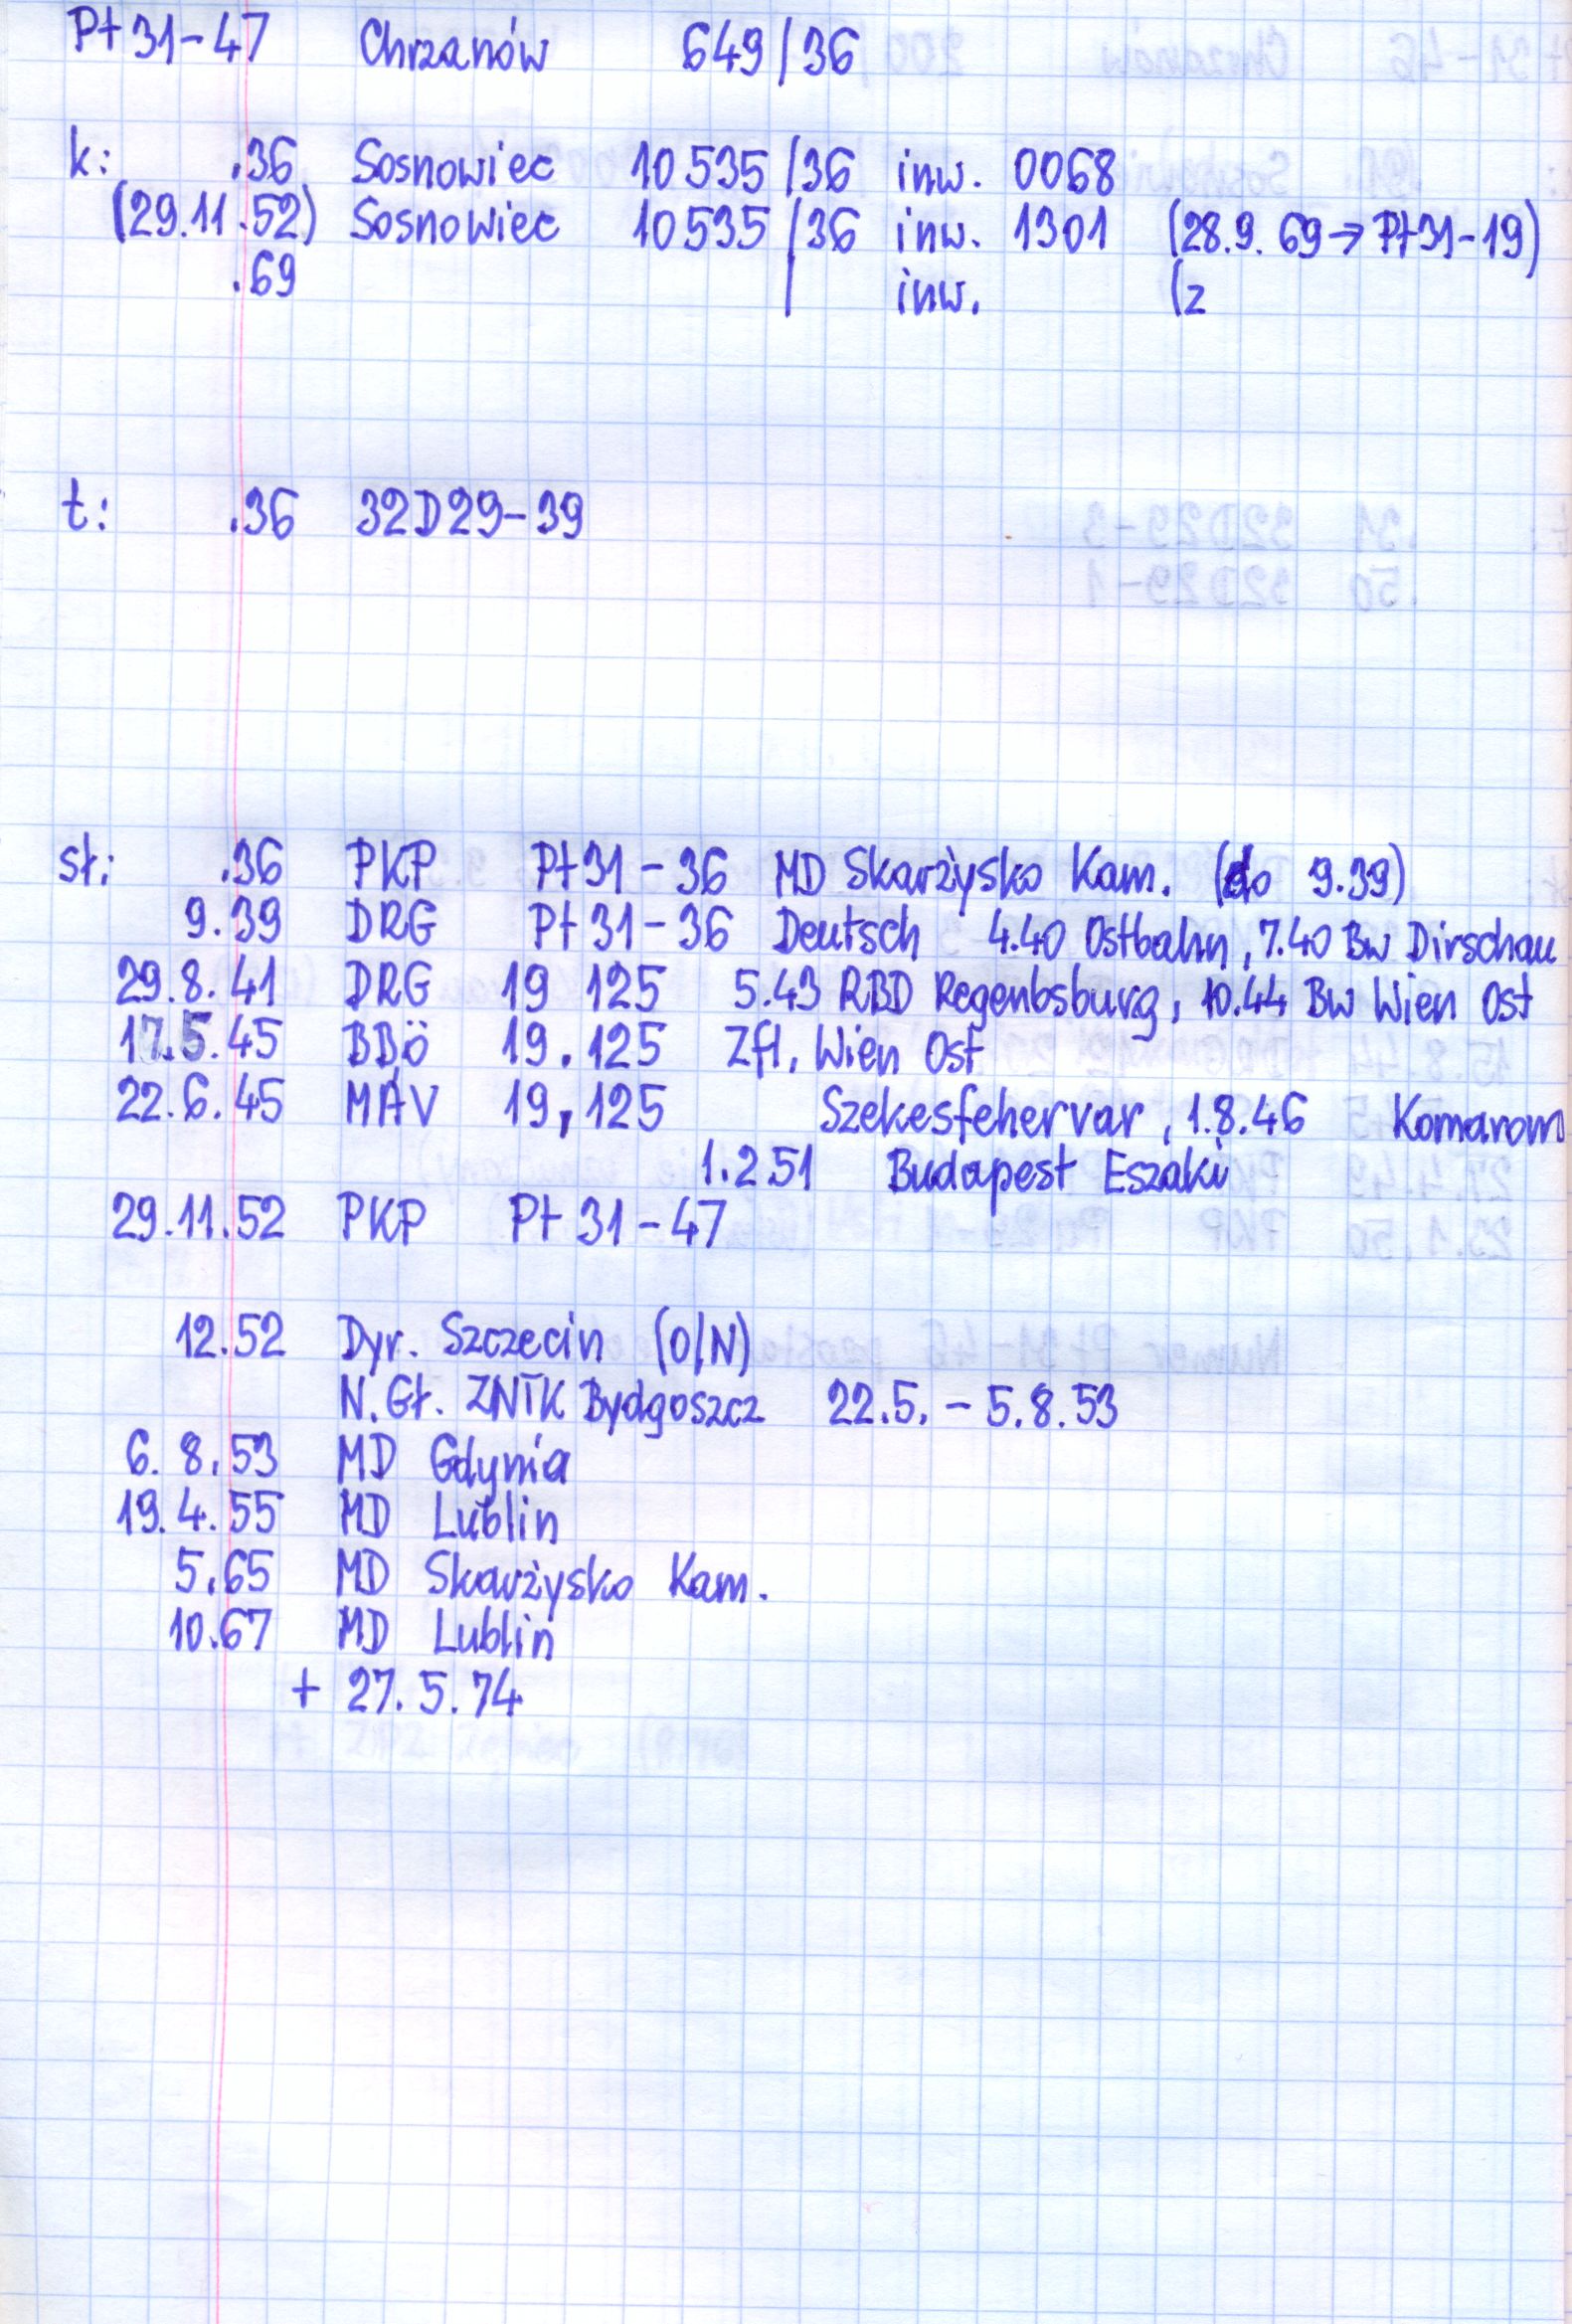 Pt31-47 Chrzanów 649/36
k: .36 Sosnowiec 10535/36 inw. 0068
(29.11.52) Sosnowiec 10535/36 inw. 1301 (28.9.69→Pt31-19)
.69 / inw. (z
t: .36 32D29-39
sł: .36 PKP Pt31-36 MD Skarżysko Kam. (do 9.39)
9.39 DRG Pt31-36 Deutsch 4.40 Ostbahn, 7.40 Bw Dirschau
29.8.41 DRG 19 125 5.43 RBD Regenbsburg, 10.44 Bw Wien Ost
17.5.45 BBö 19.125 Zfl. Wien Ost
22.6.45 MÁV 19,125 Szekesfehervar, 1.8.46 Komarom
1.2.51 Budapest Eszaki
29.11.52 PKP Pt31-47
12.52 Dyr. Szczecin (O/N)
N.Gł. ZNTK Bydgoszcz 22.5.-5.8.53
6.8.53 MD Gdynia
19.4.55 MD Lublin
5.65 MD Skarżysko Kam.
10.67 MD Lublin
+ 27.5.74